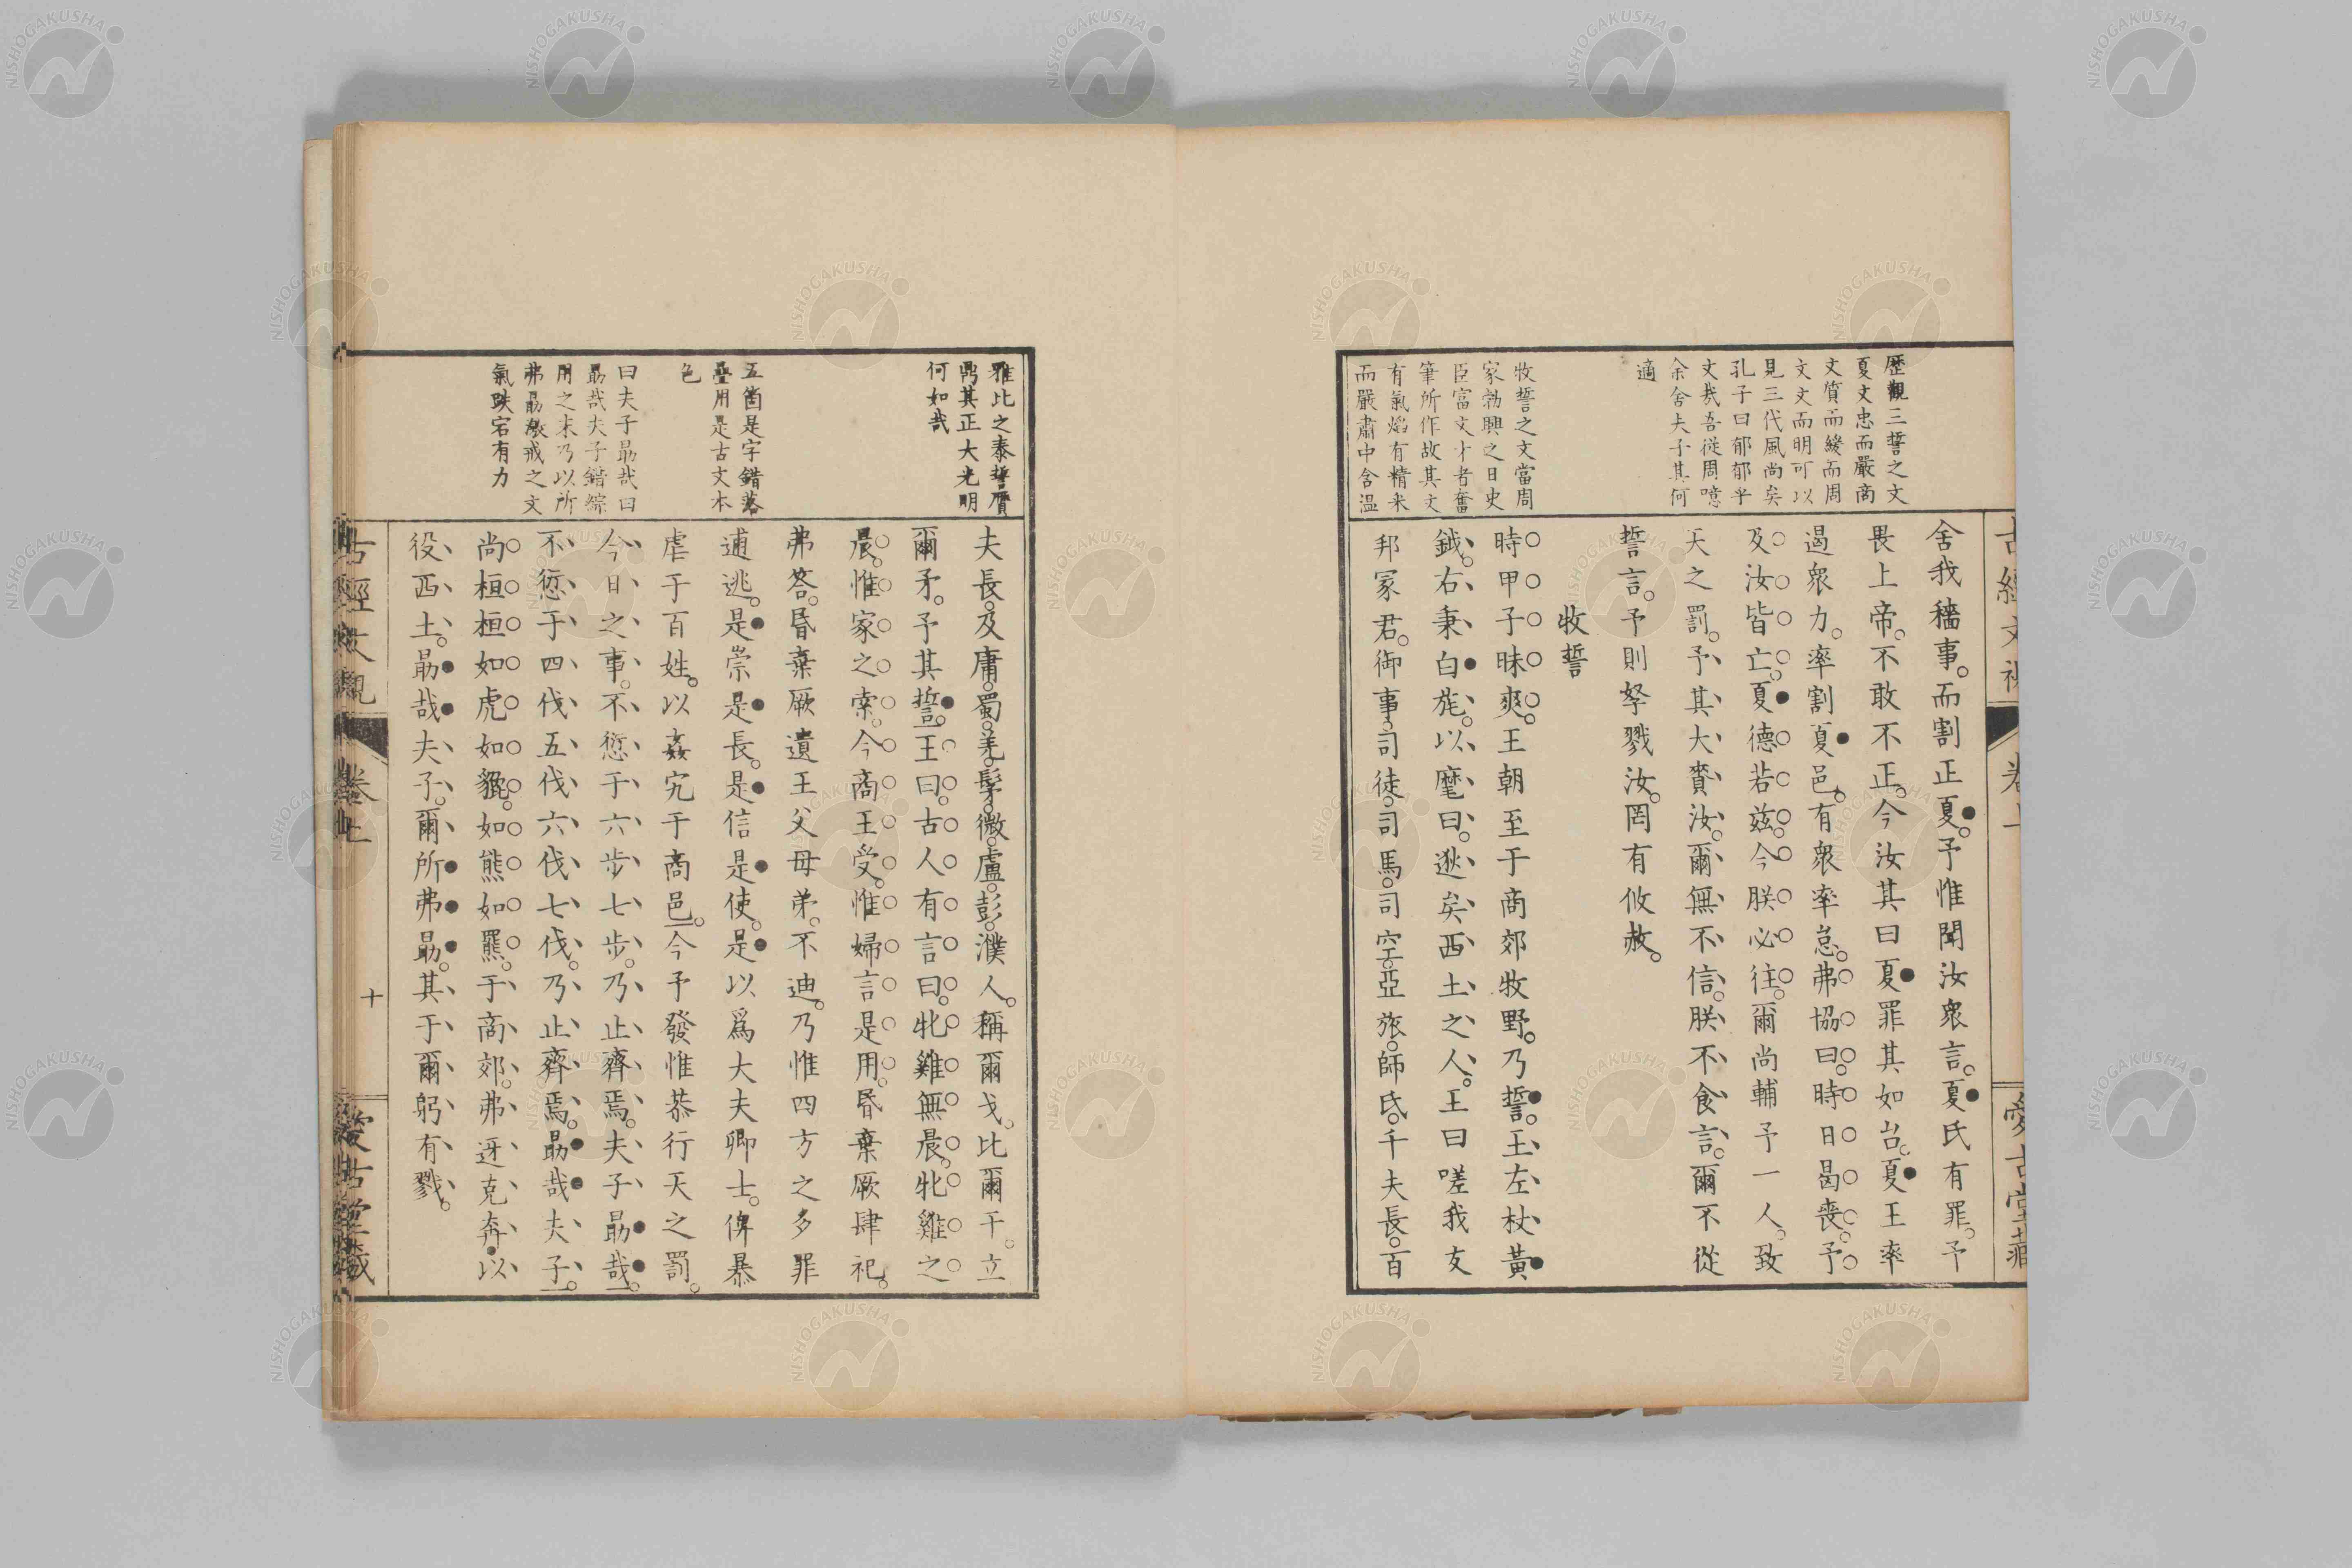 歷觀三誓之文
夏文忠而嚴商
文質而緩而周
文文而明可以
見三代風尚矣
孔子曰郁郁乎
文哉吾從周噫
余舍夫子其何
適
牧誓之文當周
家勃興之日史
臣富文才者奮
筆所作故其文
有氣焰有精采
而嚴肅中含溫
舍我穡事。而割正夏。予惟聞汝衆言。夏氏有罪。予
畏上帝。不敢不正。今汝其曰夏罪其如台。夏王率
遏衆力。率割夏邑。有衆率怠。弗協曰。時日曷喪。予
及汝皆亡。夏德若茲。今朕必往。爾尚輔予一人。致
天之罰。予其大賚汝。爾無不信。朕不食言。爾不從
誓言。予則孥戮汝。罔有攸赦。
牧誓
時甲子昧爽。王朝至于商郊牧野。乃誓。王左杖黃
鉞。右秉白旄。以麾曰。逖矣西土之人。王曰嗟我友
邦冢君。御事。司徒。司馬。司空。亞旅。師氏。千夫長。百
雅比之泰誓贋
鼎其正大光明
何如哉
五箇是字錯落
疊用是古文本
色
曰夫子勗哉曰
勗哉夫子錯綜
用之末乃以所
弗勗激戒之文
氣跌宕有力
夫長。及庸。蜀。羌。髳。微。盧。彭。濮人。稱爾戈。比爾干。立
爾矛。予其誓。王曰。古人有言曰。牝雞無晨。牝雞之
晨。惟家之索。今商王受。惟婦言是用。昬棄厥肆祀。
弗答。昬棄厥遺王父母弟。不迪。乃惟四方之多罪
逋逃。是崇是長。是信是使。是以爲大夫卿士。俾暴
虐于百姓。以姦宄于商邑。今予發惟恭行天之罰。
今日之事。不愆于六步七步。乃止齊焉。夫子勗哉。
不愆于四伐五伐六伐七伐。乃止齊焉。勗哉夫子。
尚桓桓如虎如貔。如熊如羆。于商郊。弗迓克奔。以
役西土。勗哉夫子。爾所弗勗。其于爾躬有戮。
卷上
十
愛古堂藏
NISHOGAKUSHA